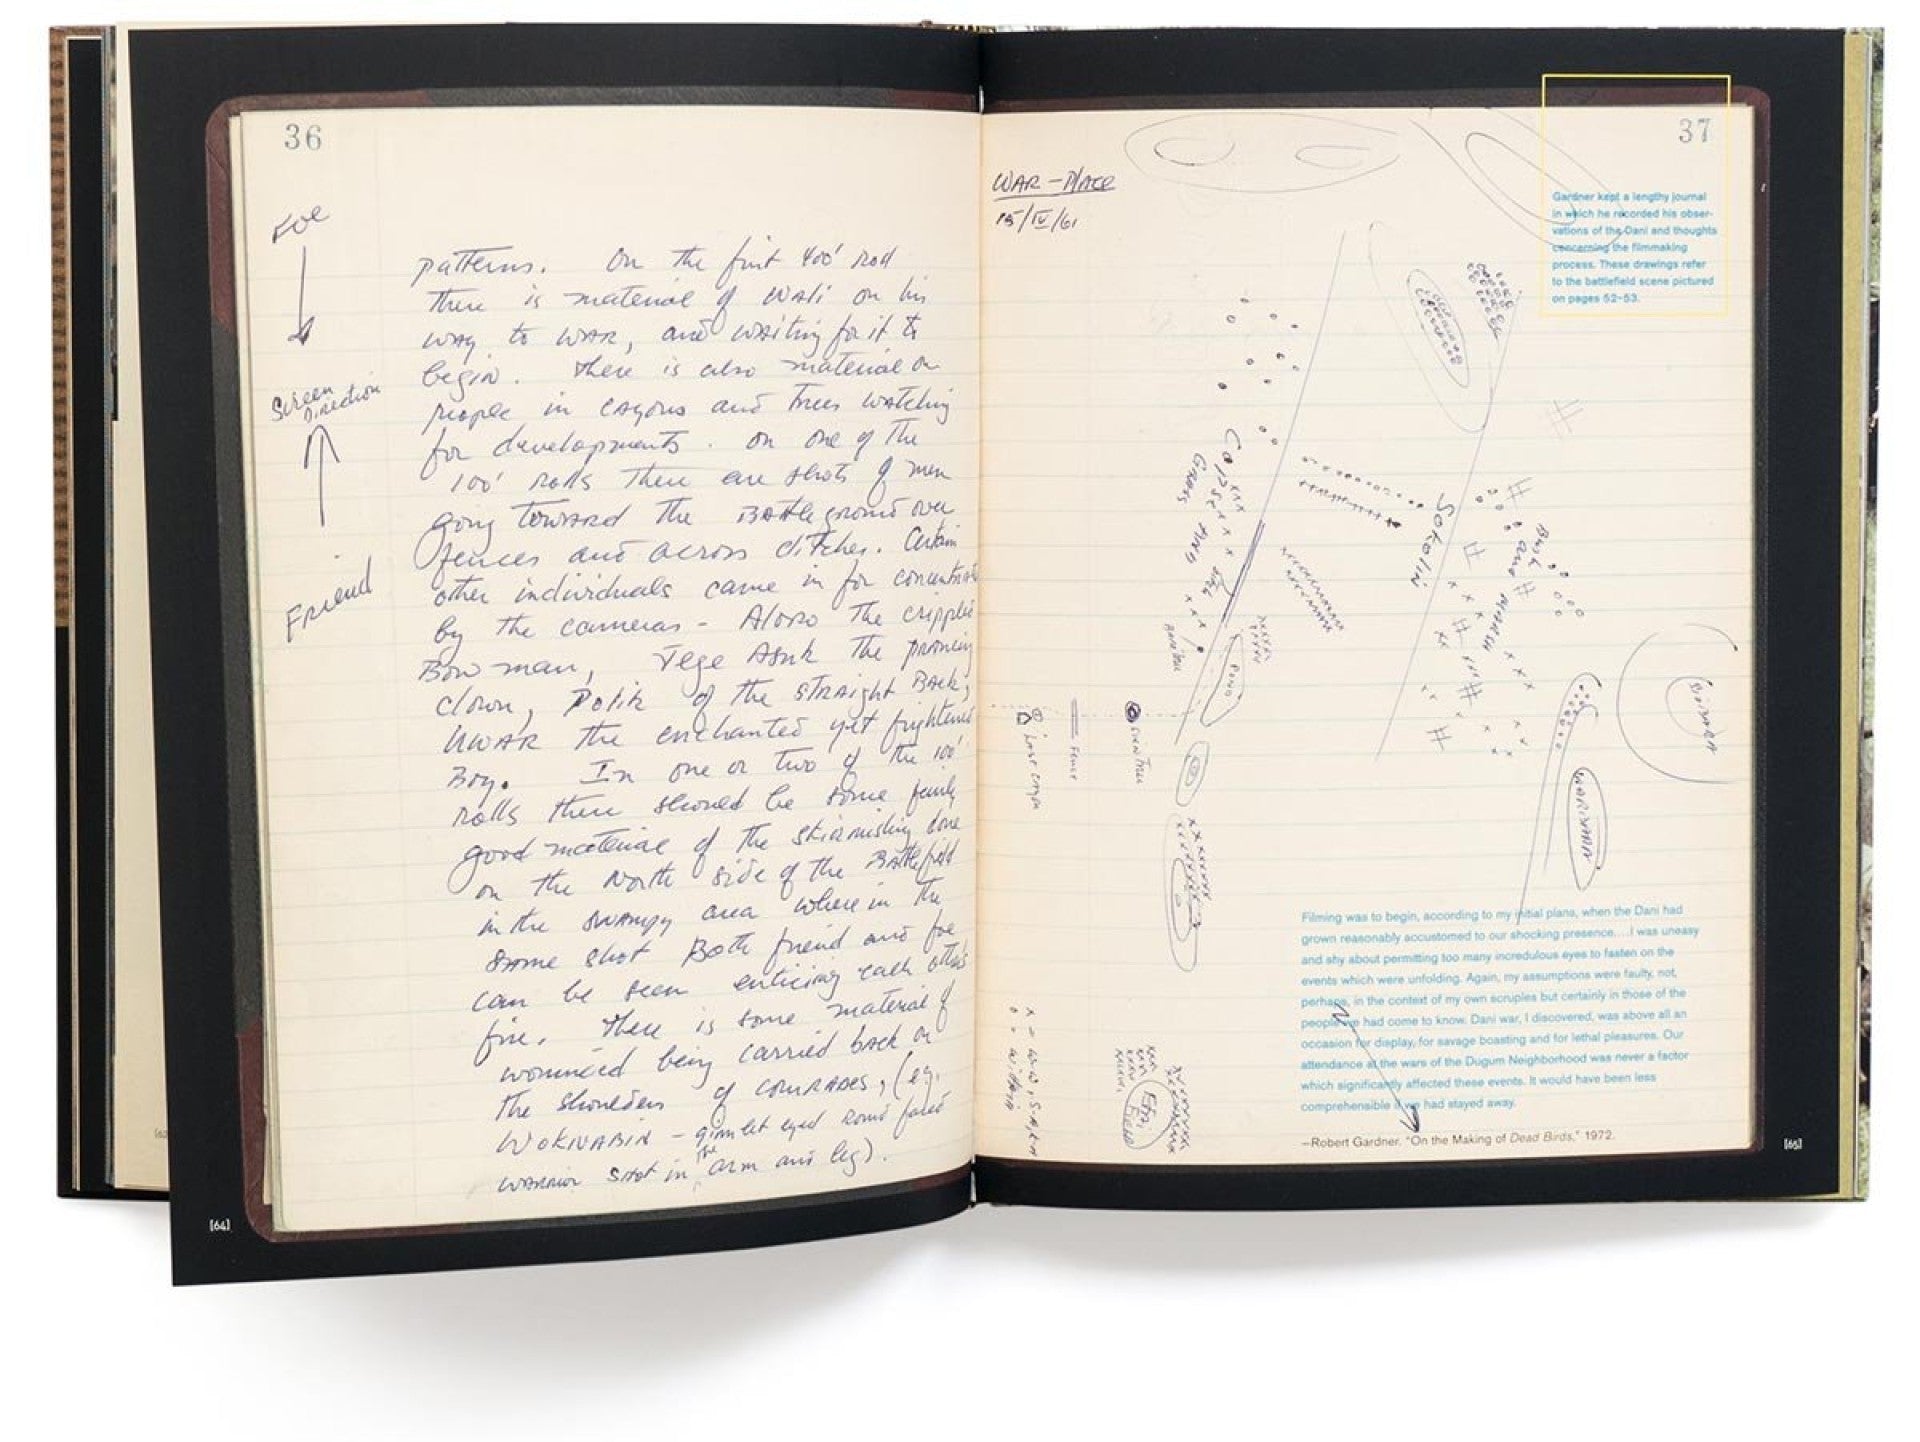 36
Foe
Screen
Direction
Friend
patterns. On the first 400' roll
there is material of Wali on his
way to WAR, and waiting for it to
begin. There is also material on
people in and trees watching
for developments. On one of the
100' rolls there are shots of men
going toward the Battleground over
fences and across ditches. Certain
other individuals came in for
by the cameras - the
Bow man, Tege Asuk the
clown, Polik of the straight Back,
UWAR the enchanted yet frightened
Boy. In one or two of the 100'
rolls there should be some fairly
good material of the skirmishing done
on the North side of the Battlefield
in the swampy area where in the
same shot Both friend and foe
can be seen enticing each other's
fire. There is some material of
wounded being carried back on
the shoulders of comrades, (eg.
- gimlet eyed faced
warrior shot in the arm and leg).
[64]
37
WAR - PLACE
15/IV/61
Gardner kept a lengthy journal
in which he recorded his obser-
vations of the Dani and thoughts
concerning the filmmaking
process. These drawings refer
to the battlefield scene pictured
on pages 52–53.
Sokolin
Bush
and
MARSH
GRASS AND
POND
Fence
Filming was to begin, according to my initial plans, when the Dani had
grown reasonably accustomed to our shocking presence....I was uneasy
and shy about permitting too many incredulous eyes to fasten on the
events which were unfolding. Again, my assumptions were faulty, not,
perhaps, in the context of my own scruples but certainly in those of the
people we had come to know. Dani war, I discovered, was above all an
occasion for display, for savage boasting and for lethal pleasures. Our
attendance at the wars of the Dugum Neighborhood was never a factor
which significantly affected these events. It would have been less
comprehensible if we had stayed away.
—Robert Gardner, "On the Making of Dead Birds," 1972.
[65]